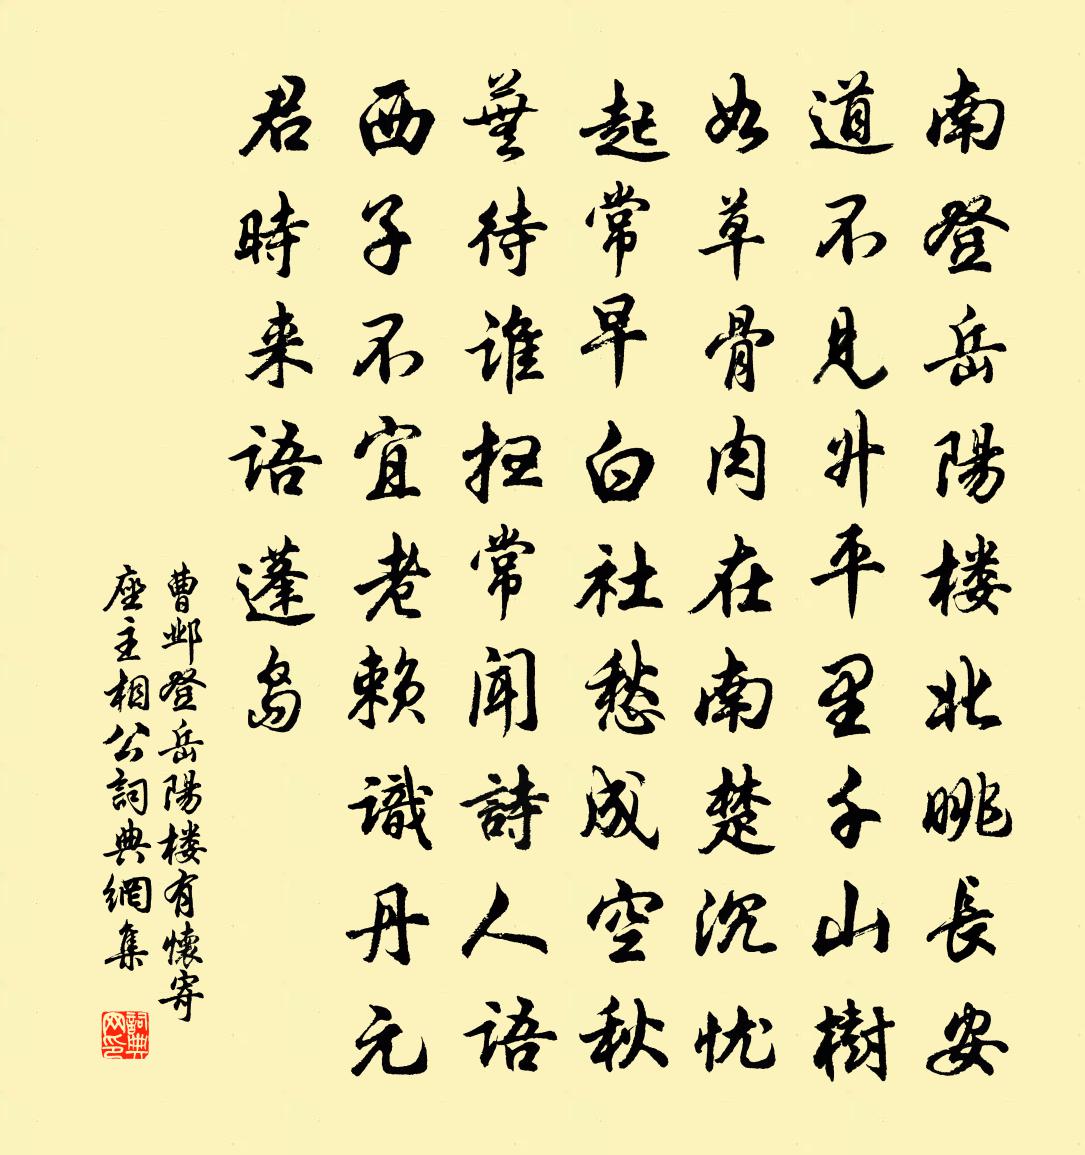 南登岳陽楼北眺長安
道不見升平里千山樹
如草骨肉在南楚沉忧
起常早白社愁成空秋
蕪待谁扫常聞詩人語
西子不宜老賴識丹元
君時来语蓬島
曹邺登岳陽楼有懷寄
座主相公詞典網集
詞典
网印